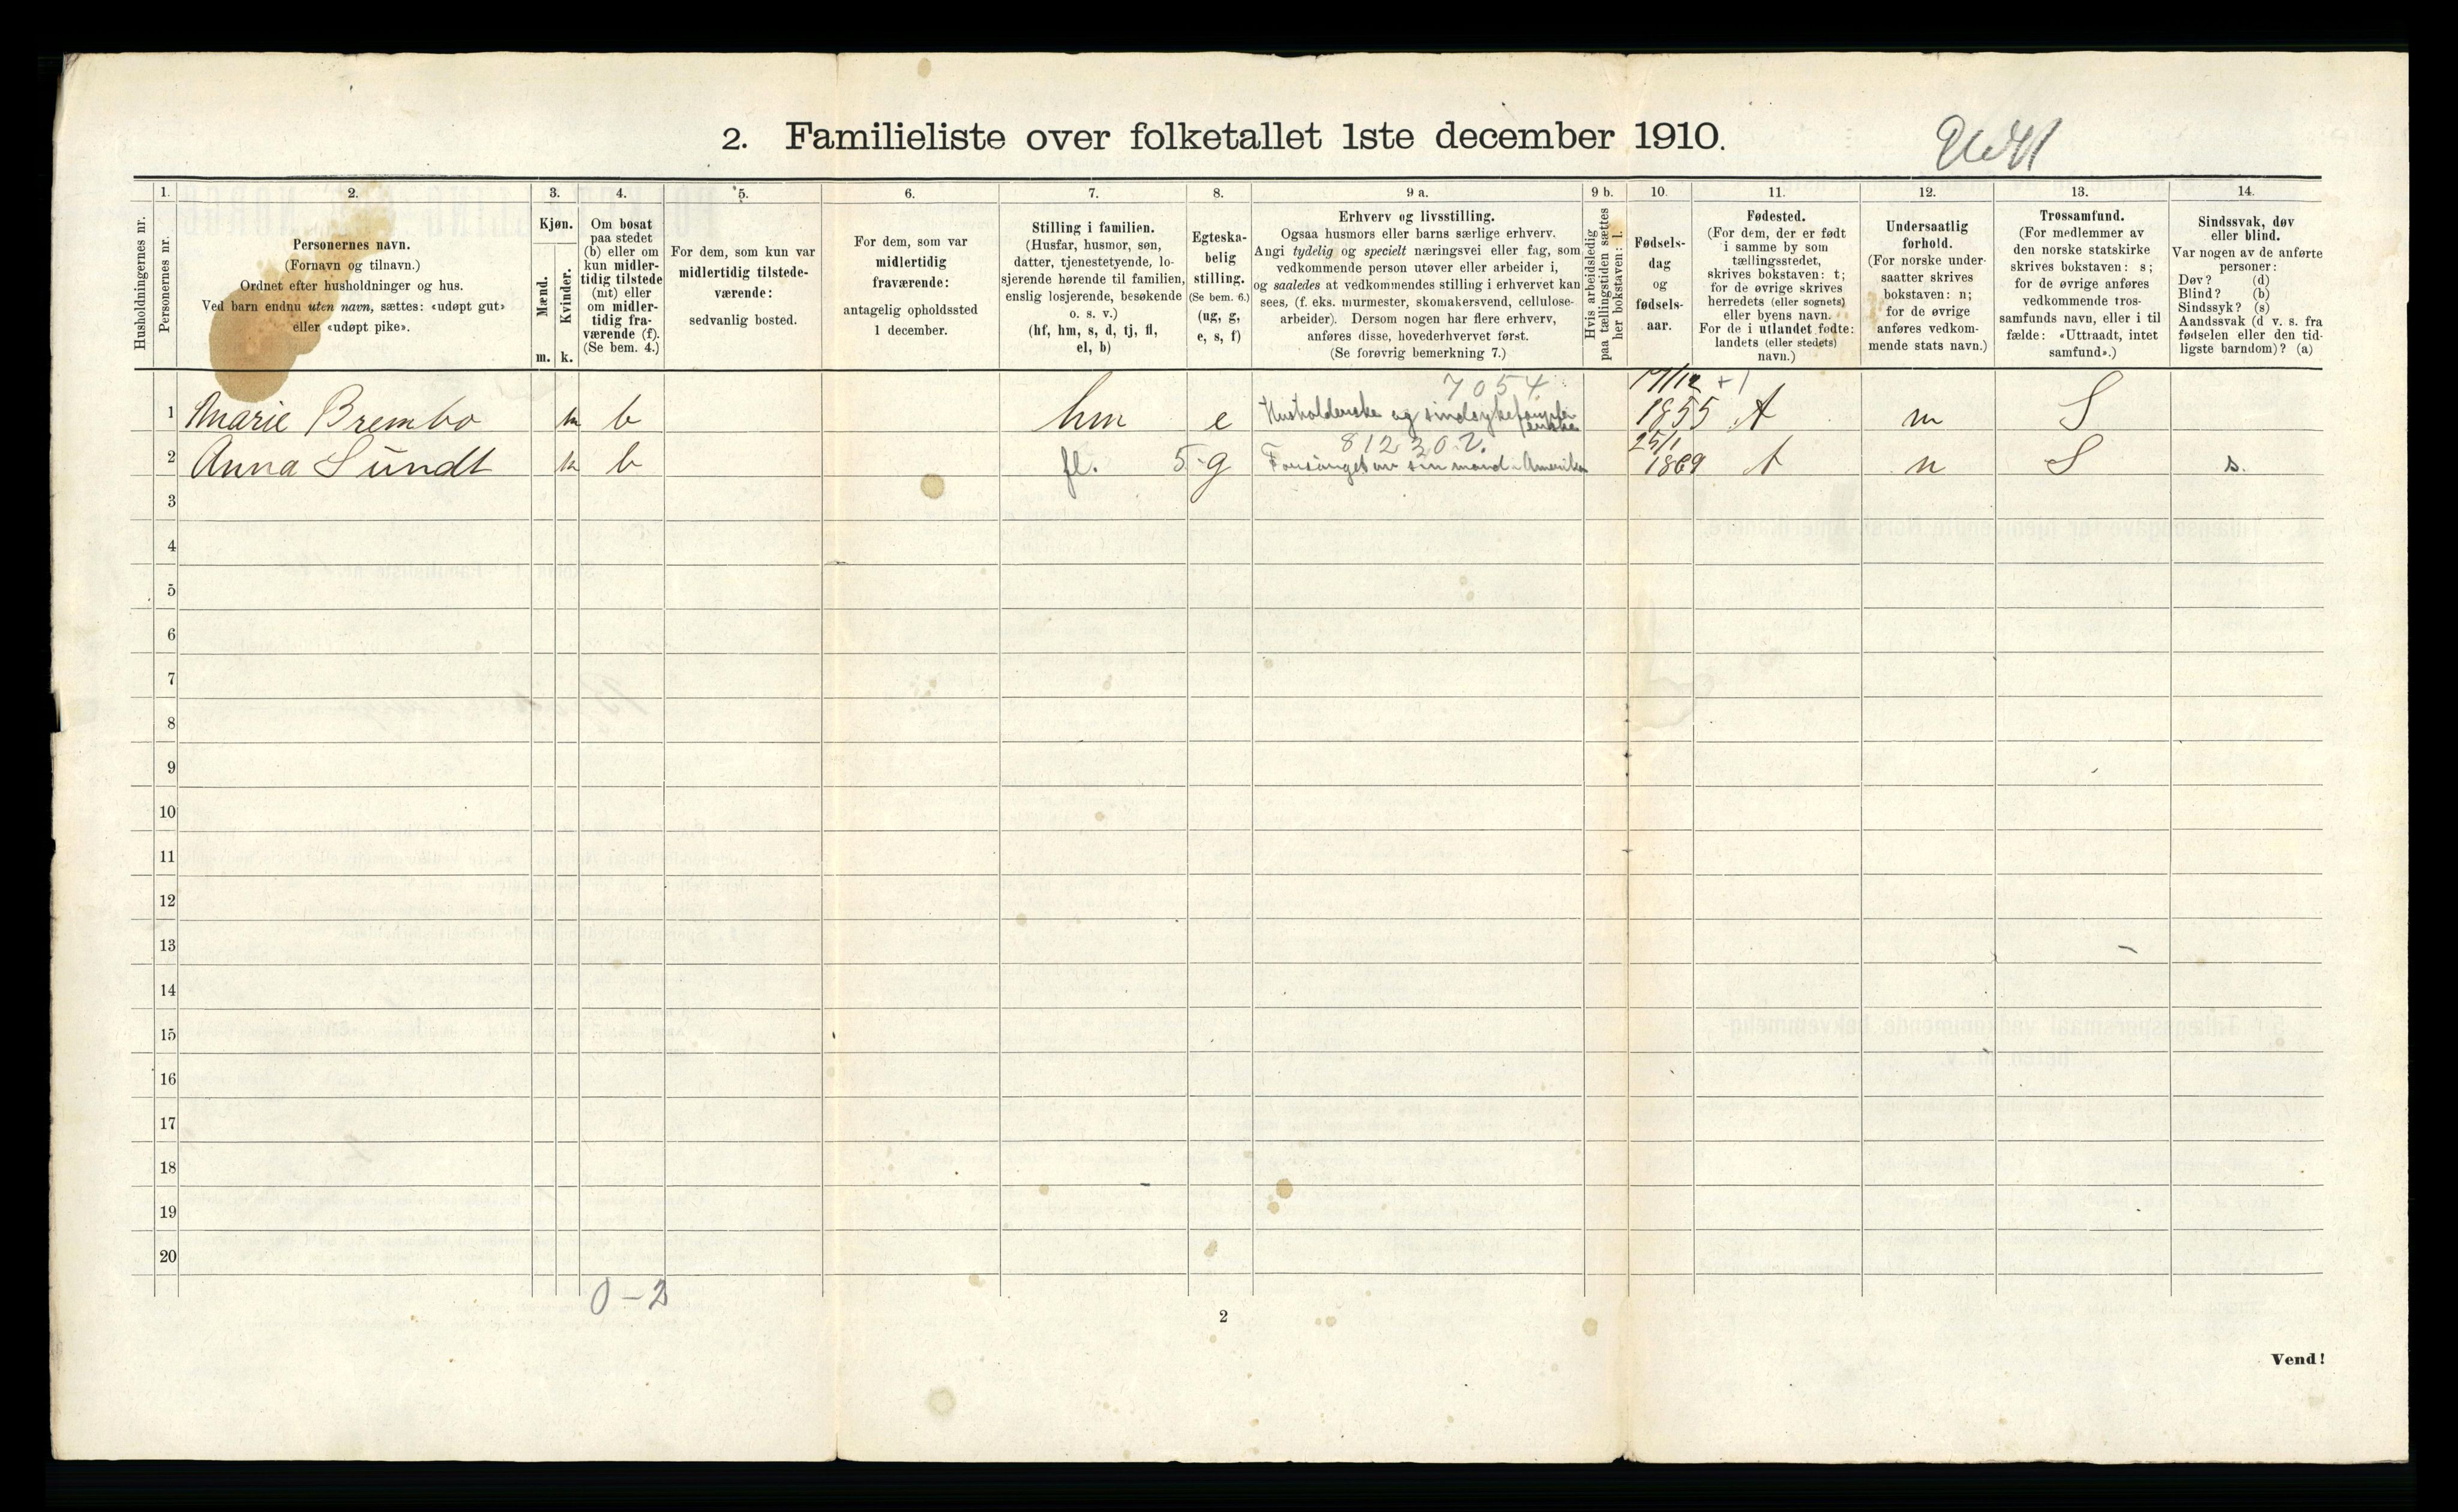 2. Familieliste over folketallet 1ste december 1910.
1. 2. 3. 4. 5. 6. 7. 8. 9 a. 9 b. 10. 11. 12. 13. 14.
Husholdningernes nr.
Personernes nr.
Personernes navn.
(Fornavn og tilnavn.)
Ordnet efter husholdninger og hus.
Ved barn endnu uten navn, sættes: «udøpt gut»
eller «udøpt pike».
Kjøn.
Mænd.
Kvinder.
m. k.
Om bosat
paa stedet
(b) eller om
kun midler-
tidig tilstede
(mt) eller
om midler-
tidig fra-
værende (f).
(Se bem. 4.)
For dem, som kun var
midlertidig tilstede-
værende:
sedvanlig bosted.
For dem, som var
midlertidig
fraværende:
antagelig opholdssted
1 december.
Stilling i familien.
(Husfar, husmor, søn,
datter, tjenestetyende, lo-
sjerende hørende til familien,
enslig losjerende, besøkende
o. s. v.)
(hf, hm, s, d, tj, fl,
el, b)
Egteska-
belig
stilling.
(Se bem. 6.)
(ug, g,
e, s, f)
Erhverv og livsstilling.
Ogsaa husmors eller barns særlige erhverv.
Angi tydelig og specielt næringsvei eller fag, som
vedkommende person utøver eller arbeider i,
og saaledes at vedkommendes stilling i erhvervet kan
sees, (f. eks. murmester, skomakersvend, cellulose-
arbeider). Dersom nogen har flere erhverv,
anføres disse, hovederhvervet først.
(Se forøvrig bemerkning 7.)
Hvis arbeidsledig
paa tællingstiden sættes
her bokstaven: l.
Fødsels-
dag
og
fødsels-
aar.
Fødested.
(For dem, der er født
i samme by som
tællingsstedet,
skrives bokstaven: t;
for de øvrige skrives
herredets (eller sognets)
eller byens navn.
For de i utlandet fødte:
landets (eller stedets)
navn.)
Undersaatlig
forhold.
(For norske under-
saatter skrives
bokstaven: n;
for de øvrige
anføres vedkom-
mende stats navn.)
Trossamfund.
(For medlemmer av
den norske statskirke
skrives bokstaven: s;
for de øvrige anføres
vedkommende tros-
samfunds navn, eller i til
fælde: «Uttraadt, intet
samfund».)
Sindssvak, døv
eller blind.
Var nogen av de anførte
personer:
Døv? (d)
Blind? (b)
Sindssyk? (s)
Aandssvak (d v. s. fra
fødselen eller den tid-
ligste barndom)? (a)
7054 17/12 +1
1 Marie Brembo k b hm e Husholderske og sindssykeforpleierske 1855 t n S
812302. 25/1
2 Anna Sundt k b fl. 5 g Forsørget av sin mand i Amerika 1869 t n S s.
3
4
5
6
7
8
9
10
11
12
13
14
15
16
17
18
19
20
0 – 2
2
Vend!